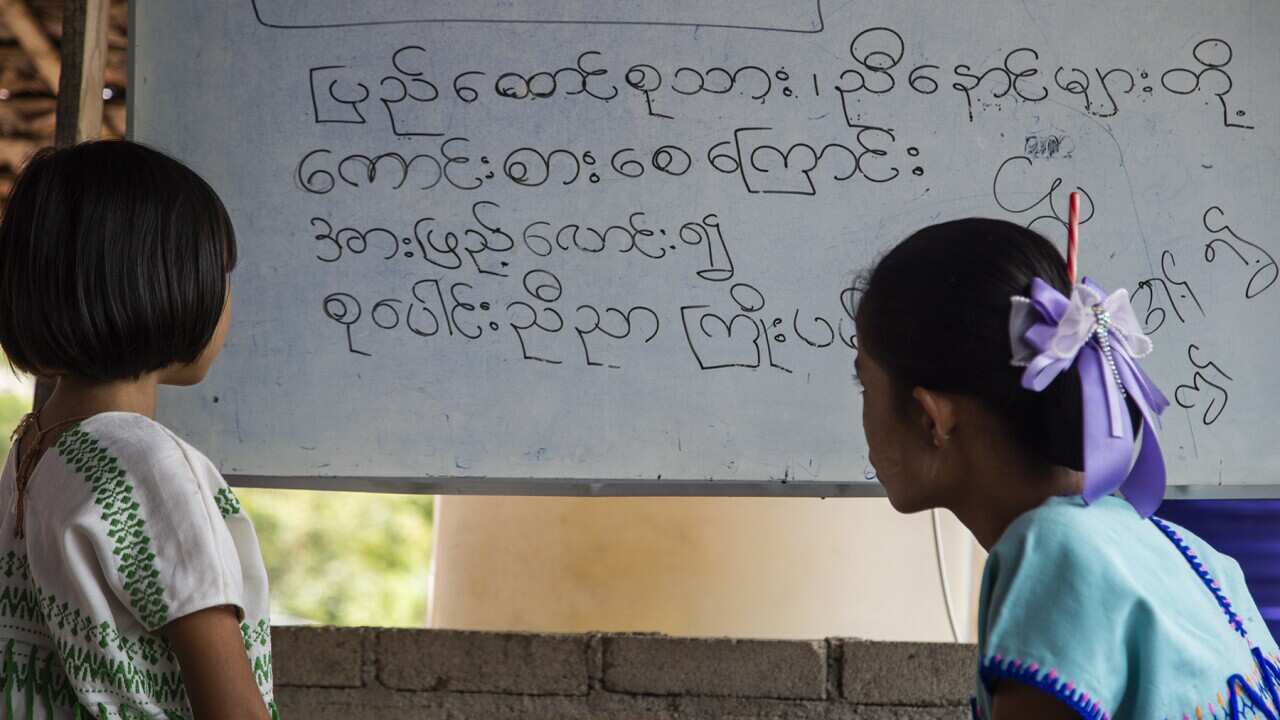 ပြည်ထောင်စုသား၊ ညီနောင်များတို့
ကောင်းစားစေကြောင်း
အားဖြည့်လောင်း၍
စုပေါင်းညီညာ ကြိုးပမ်း